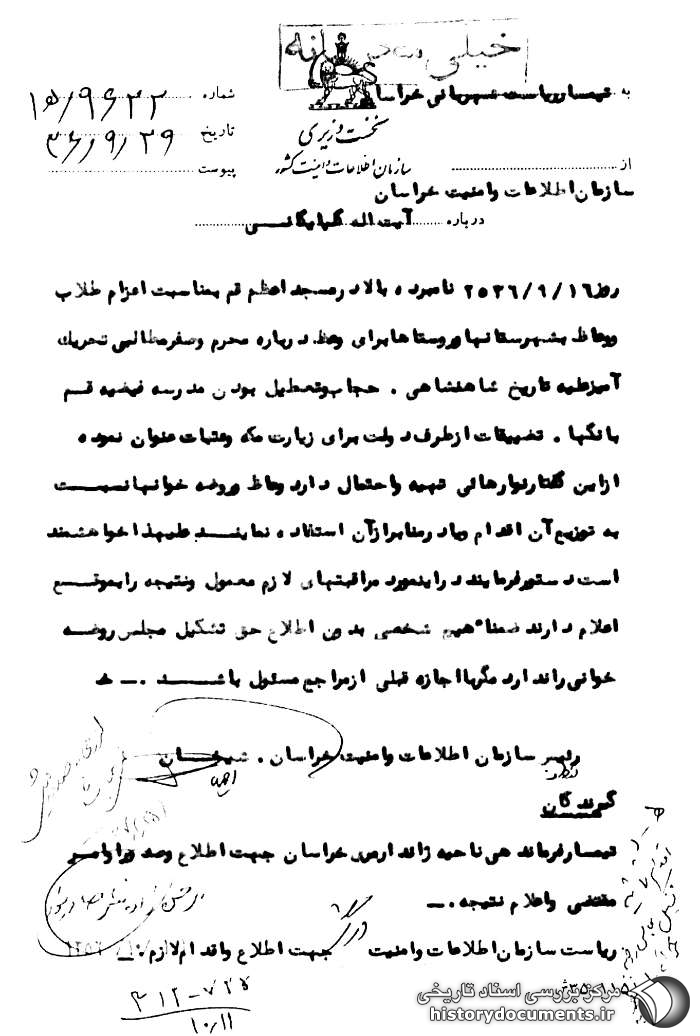 خیلی محرمانه
به تیمسار ریاست شهربانی خراسان
شماره ۱۵/۹۶۲۲
نخست وزیری
تاریخ ۳۶/۹/۲۹
سازمان اطلاعات و امنیت کشور
پیوست
از
سازمان اطلاعات وامنیت خراسان
درباره آیت اله گلپایگانی
روز ۲۵۳۶/۹/۱۶ نامبرده بالا در مسجد اعظم قم بمناسبت اعزام طلاب
ووعاظ بشهرستانها وروستاها برای وعظ درباره محرم وصفر مطالبی تحریک
آمیز علیه تاریخ شاهنشاهی . حجاب وتعطیل بودن مدرسه فیضیه قم
بانکها . تضییقات از طرف دولت برای زیارت مکه وعتبات عنوان نموده
از این گفتار نوارهائی تهیه واحتمال دارد وعاظ وروضه خوانها نسبت
به توزیع آن اقدام ویا در منابر از آن استفاده نمایند علیهذا خواهشمند
است دستور فرمایند در اینمورد مراقبتهای لازم معمول ونتیجه را بموقع
اعلام دارند ضمنا" هیچ شخصی بدون اطلاع حق تشکیل مجلس روضه
خوانی را ندارد مگر با اجازه قبلی از مراجع مسئول باشد .ـ خ
رئیس سازمان اطلاعات وامنیت خراسان . شیخان
گیرندگان
تیمسار فرماندهی ناحیه ژاندارمری خراسان جهت اطلاع وصدور اوامر
مقتضی واعلام نتیجه .ـ
ریاست سازمان اطلاعات وامنیت جهت اطلاع واقدام لازم .ـ
۱۰/۱۱
مرکز بررسی اسناد تاریخی
historydocuments.ir